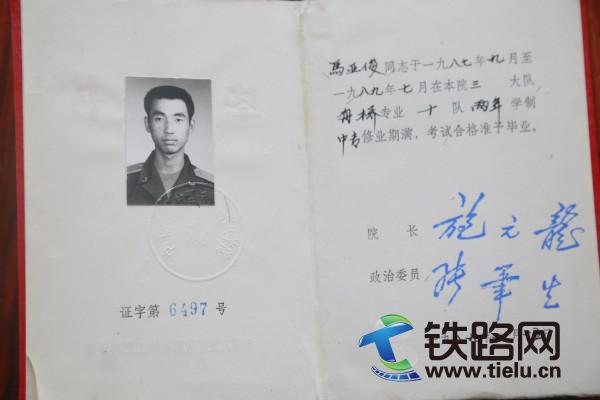 证字第 6497 号
马亚俊同志于一九八七年九月至
一九八九年七月在本院三 大队
舟桥专业 十 队 两年 学制
中专修业期满，考试合格准予毕业。
院 长 施元龙
政治委员
铁路网
www.tielu.cn